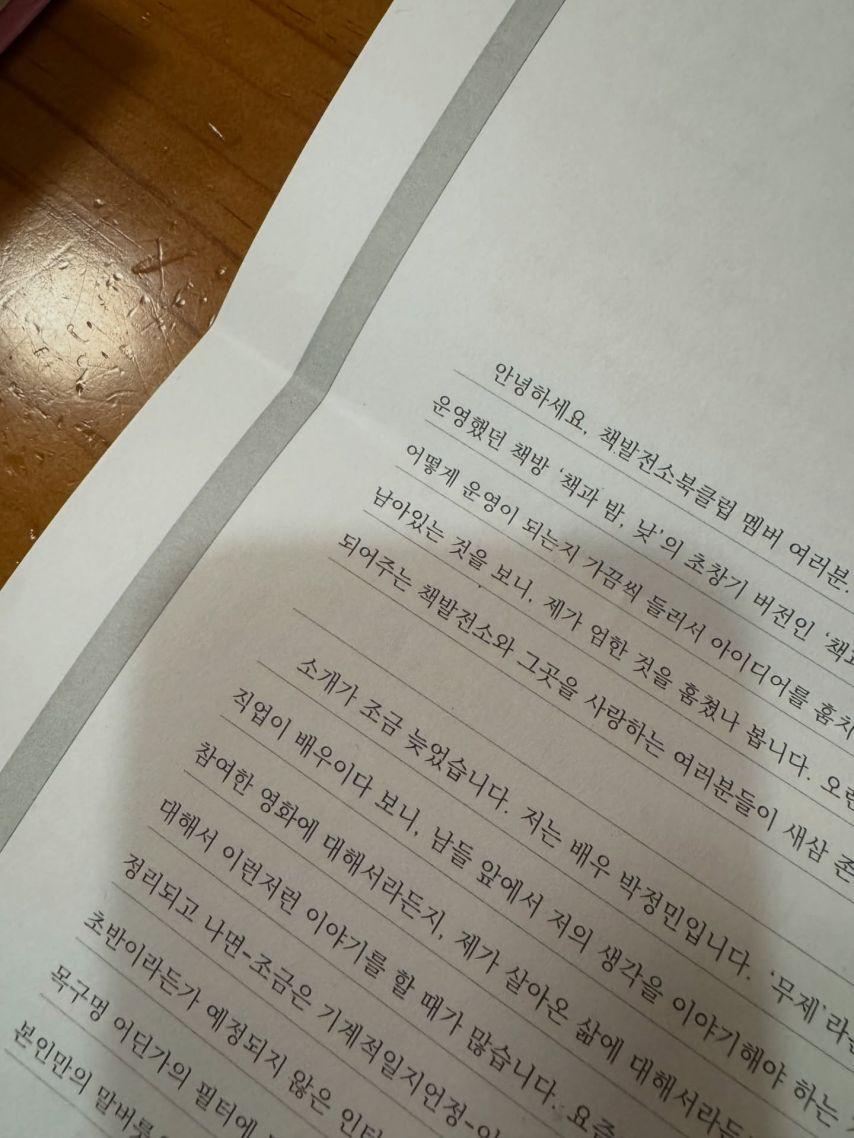 안녕하세요, 책발전소북클럽 멤버 여러분.
운영했던 책방 '책과 밤, 낮'의 초창기 버전인 '책과
어떻게 운영이 되는지 가끔씩 들러서 아이디어를 훔치
남아있는 것을 보니, 제가 엄한 것을 훔쳤나 봅니다. 오랜
되어주는 책발전소와 그곳을 사랑하는 여러분들이 새삼 존
소개가 조금 늦었습니다. 저는 배우 박정민입니다. '무제'라는
직업이 배우이다 보니, 남들 앞에서 저의 생각을 이야기해야 하는
참여한 영화에 대해서라든지, 제가 살아온 삶에 대해서라든
대해서 이런저런 이야기를 할 때가 많습니다. 요즘
정리되고 나면-조금은 기계적일지언정-
초반이라든가 예정되지 않은 인터
목구멍 어딘가의 필터에
본인만의 말버릇